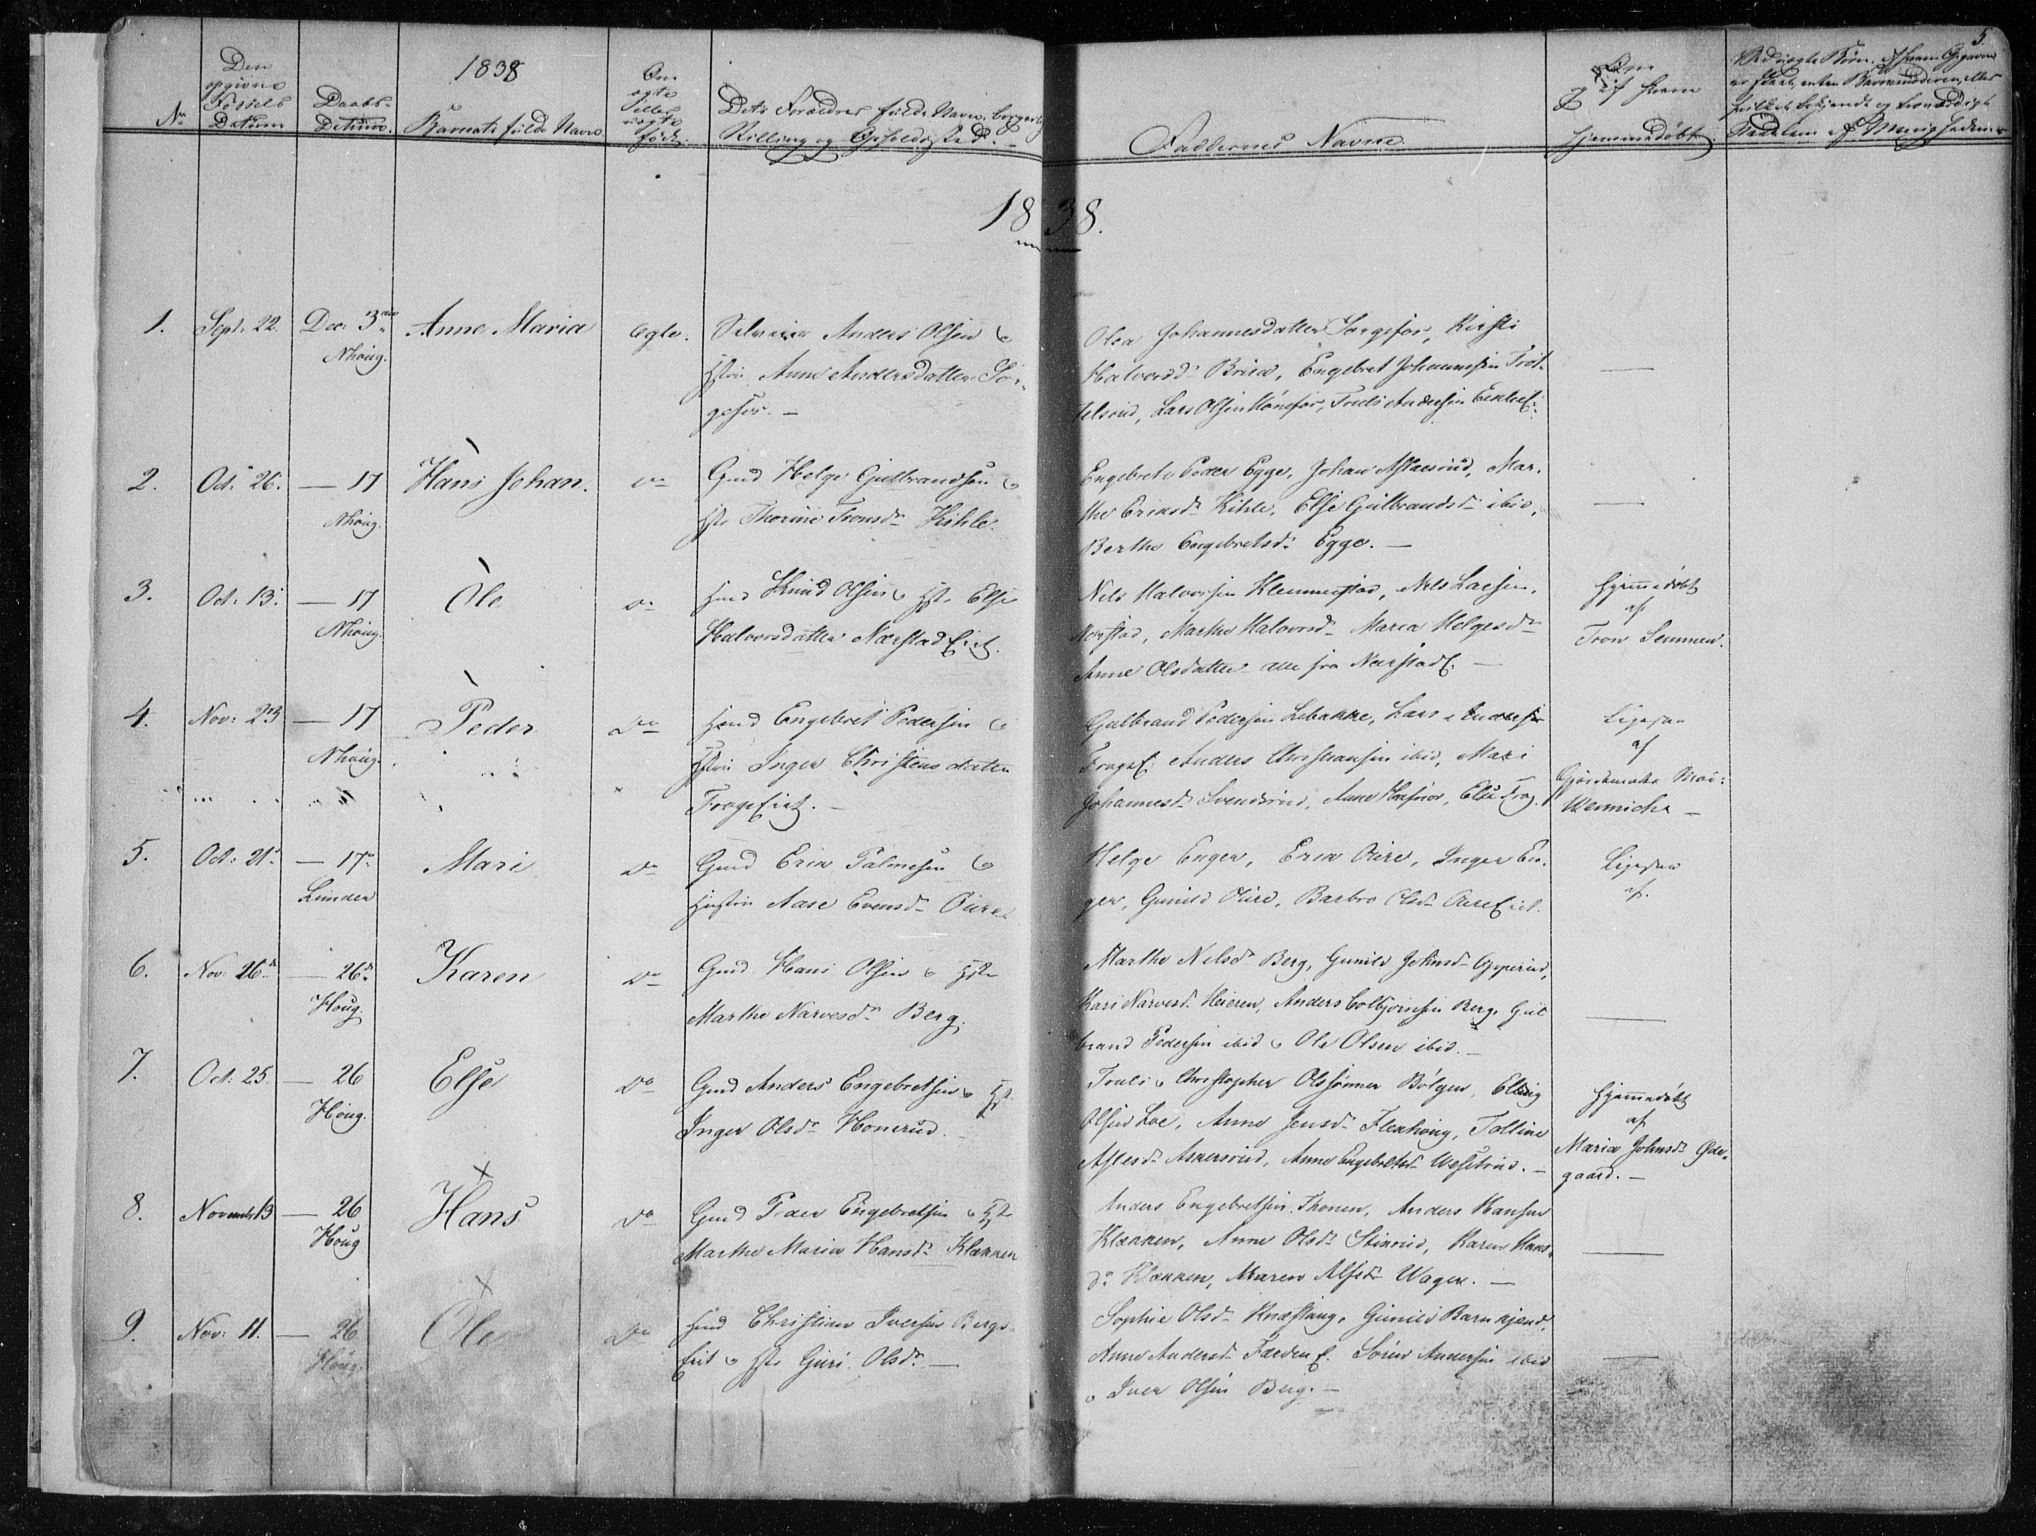 5.
1838
Nr.
Den
opgivne
Fødsels
Datum
Daabs-
Datum.
Barnets fulde Navn.
Om
ægte
eller
uægte
født.
Dets Forældres fulde Navn, borgerlig
Stilling og Opholdssted.
Faddernes Navne.
Om
af hvem
hjemmedøbt
Ved uægte Børn,
1838.
1. Sept: 22. Dec: 3die Anne Maria ægte. Selveier Anders Olsen &
Nhoug. Hstru Anne Andersdatter Sör-
gefos. —
Olea Johannesdatter Sørgefos, Kirsti
Halvorsd: Engebret Johannesen Trøt-
telsrud, Lars Olsen Hönefos, Truls Andersen
2. Oct: 26. — 17 Hans Johan. Gmd Helge Gulbrandsen &
Nhoug. Hstr Thorine Tronsdr Kihle.
Engebret & Peder Egge, Johan Mar-
the Eriksdr Kihle, Else Gulbrandsdr ibid,
Berthe Engebretsdr Egge. —
3. Oct: 13. — 17 Ole do Hmd Knud Olsen & Hstr Else
Nhoug. Halvorsdatter Nærstad Eiet.
Nils Halvorsen Klemmestad, Nils Larsen,
Nærstad, Marthe Halvorsdr Maria Helgesdr
Anne Olsdatter alle fra Nærstad E. —
Hjemmedöbt
af
Tron Semmen.
4. Nov: 23 — 17 Peder do Hmd Engebret Pedersen &
Nhoug. Hstru Inger Christensdatter
Frogs Eiet. —
Gulbrand Pedersen Lobakke, Lars Andersen
Frogs E: Anders Christiansen ibid, Mari
Johannesdr Svendsrud, Anne Else Frog.
Ligesaa
af
Gjordemoder Mad:
Wernicke —
5. Oct: 21. — 17de Mari do Gmd Erik Palmesen &
Lunder Hustru Aase Evensdr Oure.
Helge Enger, Erik Oure, Inger En-
ger, Gunild Oure, Barbro Olsdr Oure Eiet.
Ligesaa
af.
6. Nov: 26de — 26de Karen do Gmd. Hans Olsen & Hstr
Houg. Marthe Narvesdr Berg.
Marthe Nilsdr Berg, Gunild Johnsdr Opperud,
Kari Narvesdr Meieren, Anders Colbjörnsen Berg, Gul-
brand Pedersen ibid & Ole Olsen ibid. —
7. Oct: 25. — 26 Else do Gmd Anders Engebretsen & Hstr
Houg. Inger Olsdr Honerud.
Truls & Christopher Olssönner Bölgen, Elling
Olsen Loe, Anne Jensdr Flexhoug, Tolline
Aslesdr Askersrud, Anne Engebretsdr Veselrud. —
Hjemmedöbt
af
Maria Johnsdr Öde-
gaard. —
8. Novembr 13 — 26 Hans do Gmd Peder Engebretsen & Hstr
Houg Marthe Maria Hansdr Klækken
Anders Engebretsen Thonen, Anders Hansen
Klækken, Anne Olsdr Stixrud, Karen Hans-
dr Klækken, Maren Alfsdr Wager. —
9. Nov: 11. — 26 Ole do Hmd Christian Iversen Bergs-
Houg. Eiet & Hstr Guri Olsdr —
Sophie Olsdr Knæstang, Gunild Barnkjend,
Anne Andersdr Færden E. Sören Andersen ibid
& Iver Olsen Berg. —